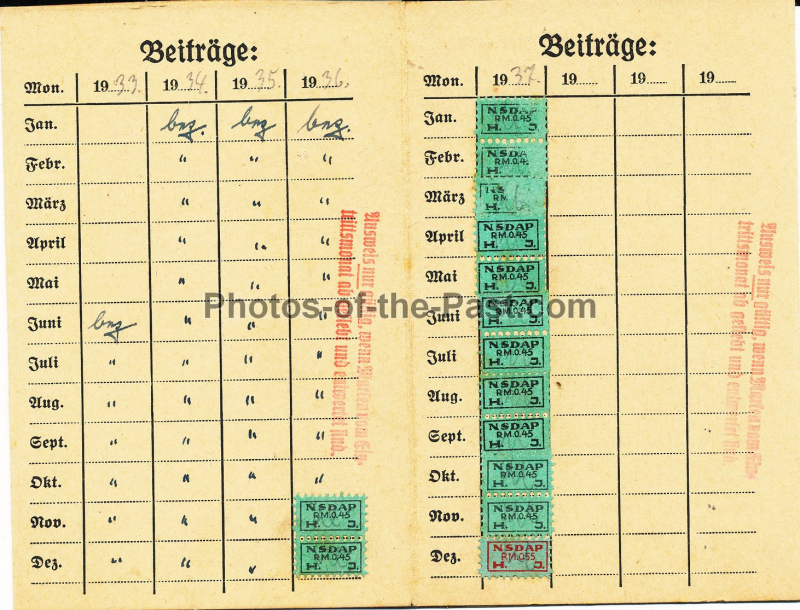 Beiträge:
Mon. 1933. 1934. 1935. 1936.
Jan. bez. bez bez.
Febr. " " "
März " " "
April " " "
Mai " " "
Juni bez " " "
Juli " " " "
Aug. " " " "
Sept. " " " "
Okt. " " " "
Nov. " " " NSDAP RM.0.45 H. J.
Dez. " " " NSDAP RM.0.45 H. J.
Ausweis nur gültig, wenn Marken vom Ein-
trittsmonat ab geklebt und entwertet sind.
Beiträge:
Mon. 1937. 19 19 19
Jan. NSDAP RM.0.45 H. J.
Febr. NSDA RM.0.4 H.
März NS RM H.
April NSDAP RM.0.45 H. J.
Mai NSDAP RM.0.45 H. J.
Juni NSDAP RM.0.45 H. J.
Juli NSDAP RM.0.45 H. J.
Aug. NSDAP RM.0.45 H. J.
Sept. NSDAP RM.0.45 H. J.
Okt. NSDAP RM.0.45 H. J.
Nov. NSDAP RM.0.45 H. J.
Dez. NSDAP RM.0.55 H. J.
Ausweis nur gültig, wenn Marken vom Ein-
trittsmonat ab geklebt und entwertet sind.
Photos-of-the-Past.com